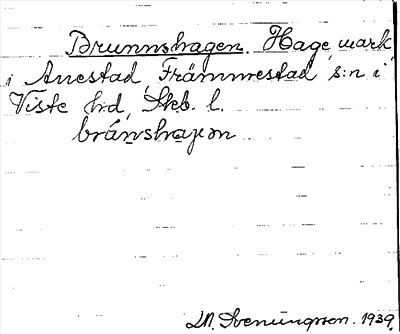 Brunnshagen. Hage, mark
i Anestad, Främmestad s:n i
Viste hd, Skb. l.
brúnshaɡen
M. Svenungsson. 1939.